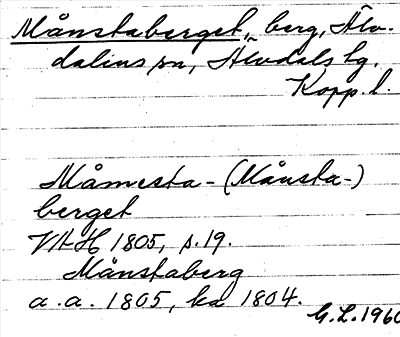 Månstaberget, berg, Älv-
dalens sn, Älvdals tg,
Kopp. l.
Måmesta- (Månsta-)
berget
VHH 1805, s. 19.
Månstaberg
a. a. 1805, ka 1804.
G.L. 1960